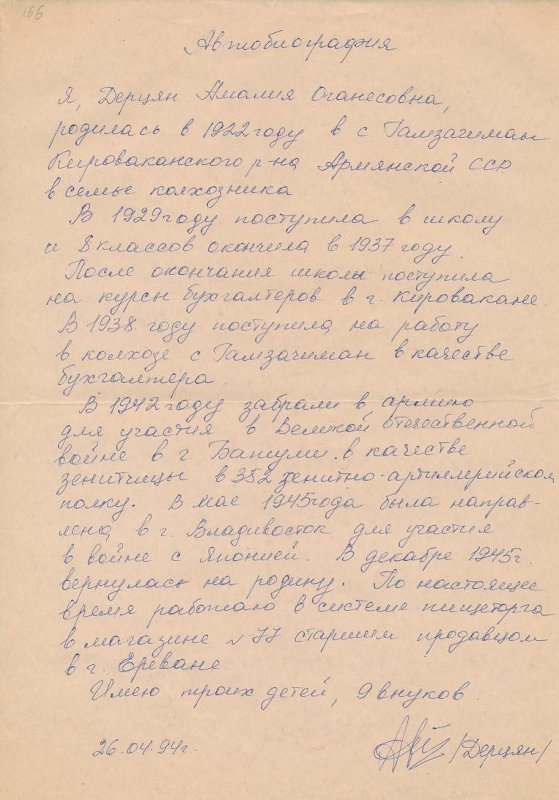 166
Автобиография
Я, Дерцян Амалия Оганесовна,
родилась в 1922 году в с. Гамзачиман
Кироваканского р-на Армянской ССР
в семье колхозника.
В 1929 году поступила в школу
и 8 классов окончила в 1937 году.
После окончания школы поступила
на курсы бухгалтеров в г. Кировакане.
В 1938 году поступила на работу
в колхозе с Гамзачиман в качестве
бухгалтера
В 1942 году забрали в армию
для участия в Великой Отечественной
войне в г Батуми в качестве
зенитчицы в 382 зенитно-артиллерийском
полку. В мае 1945 года была направ-
лена в г. Владивосток для участия
в войне с Японией. В декабре 1945г.
вернулась на родину. По настоящее
время работаю в системе пищеторга
в магазине №77 старшим продавцом
в г. Ереване
Имею троих детей, 9 внуков.
26.04.94г.
/Дерцян/